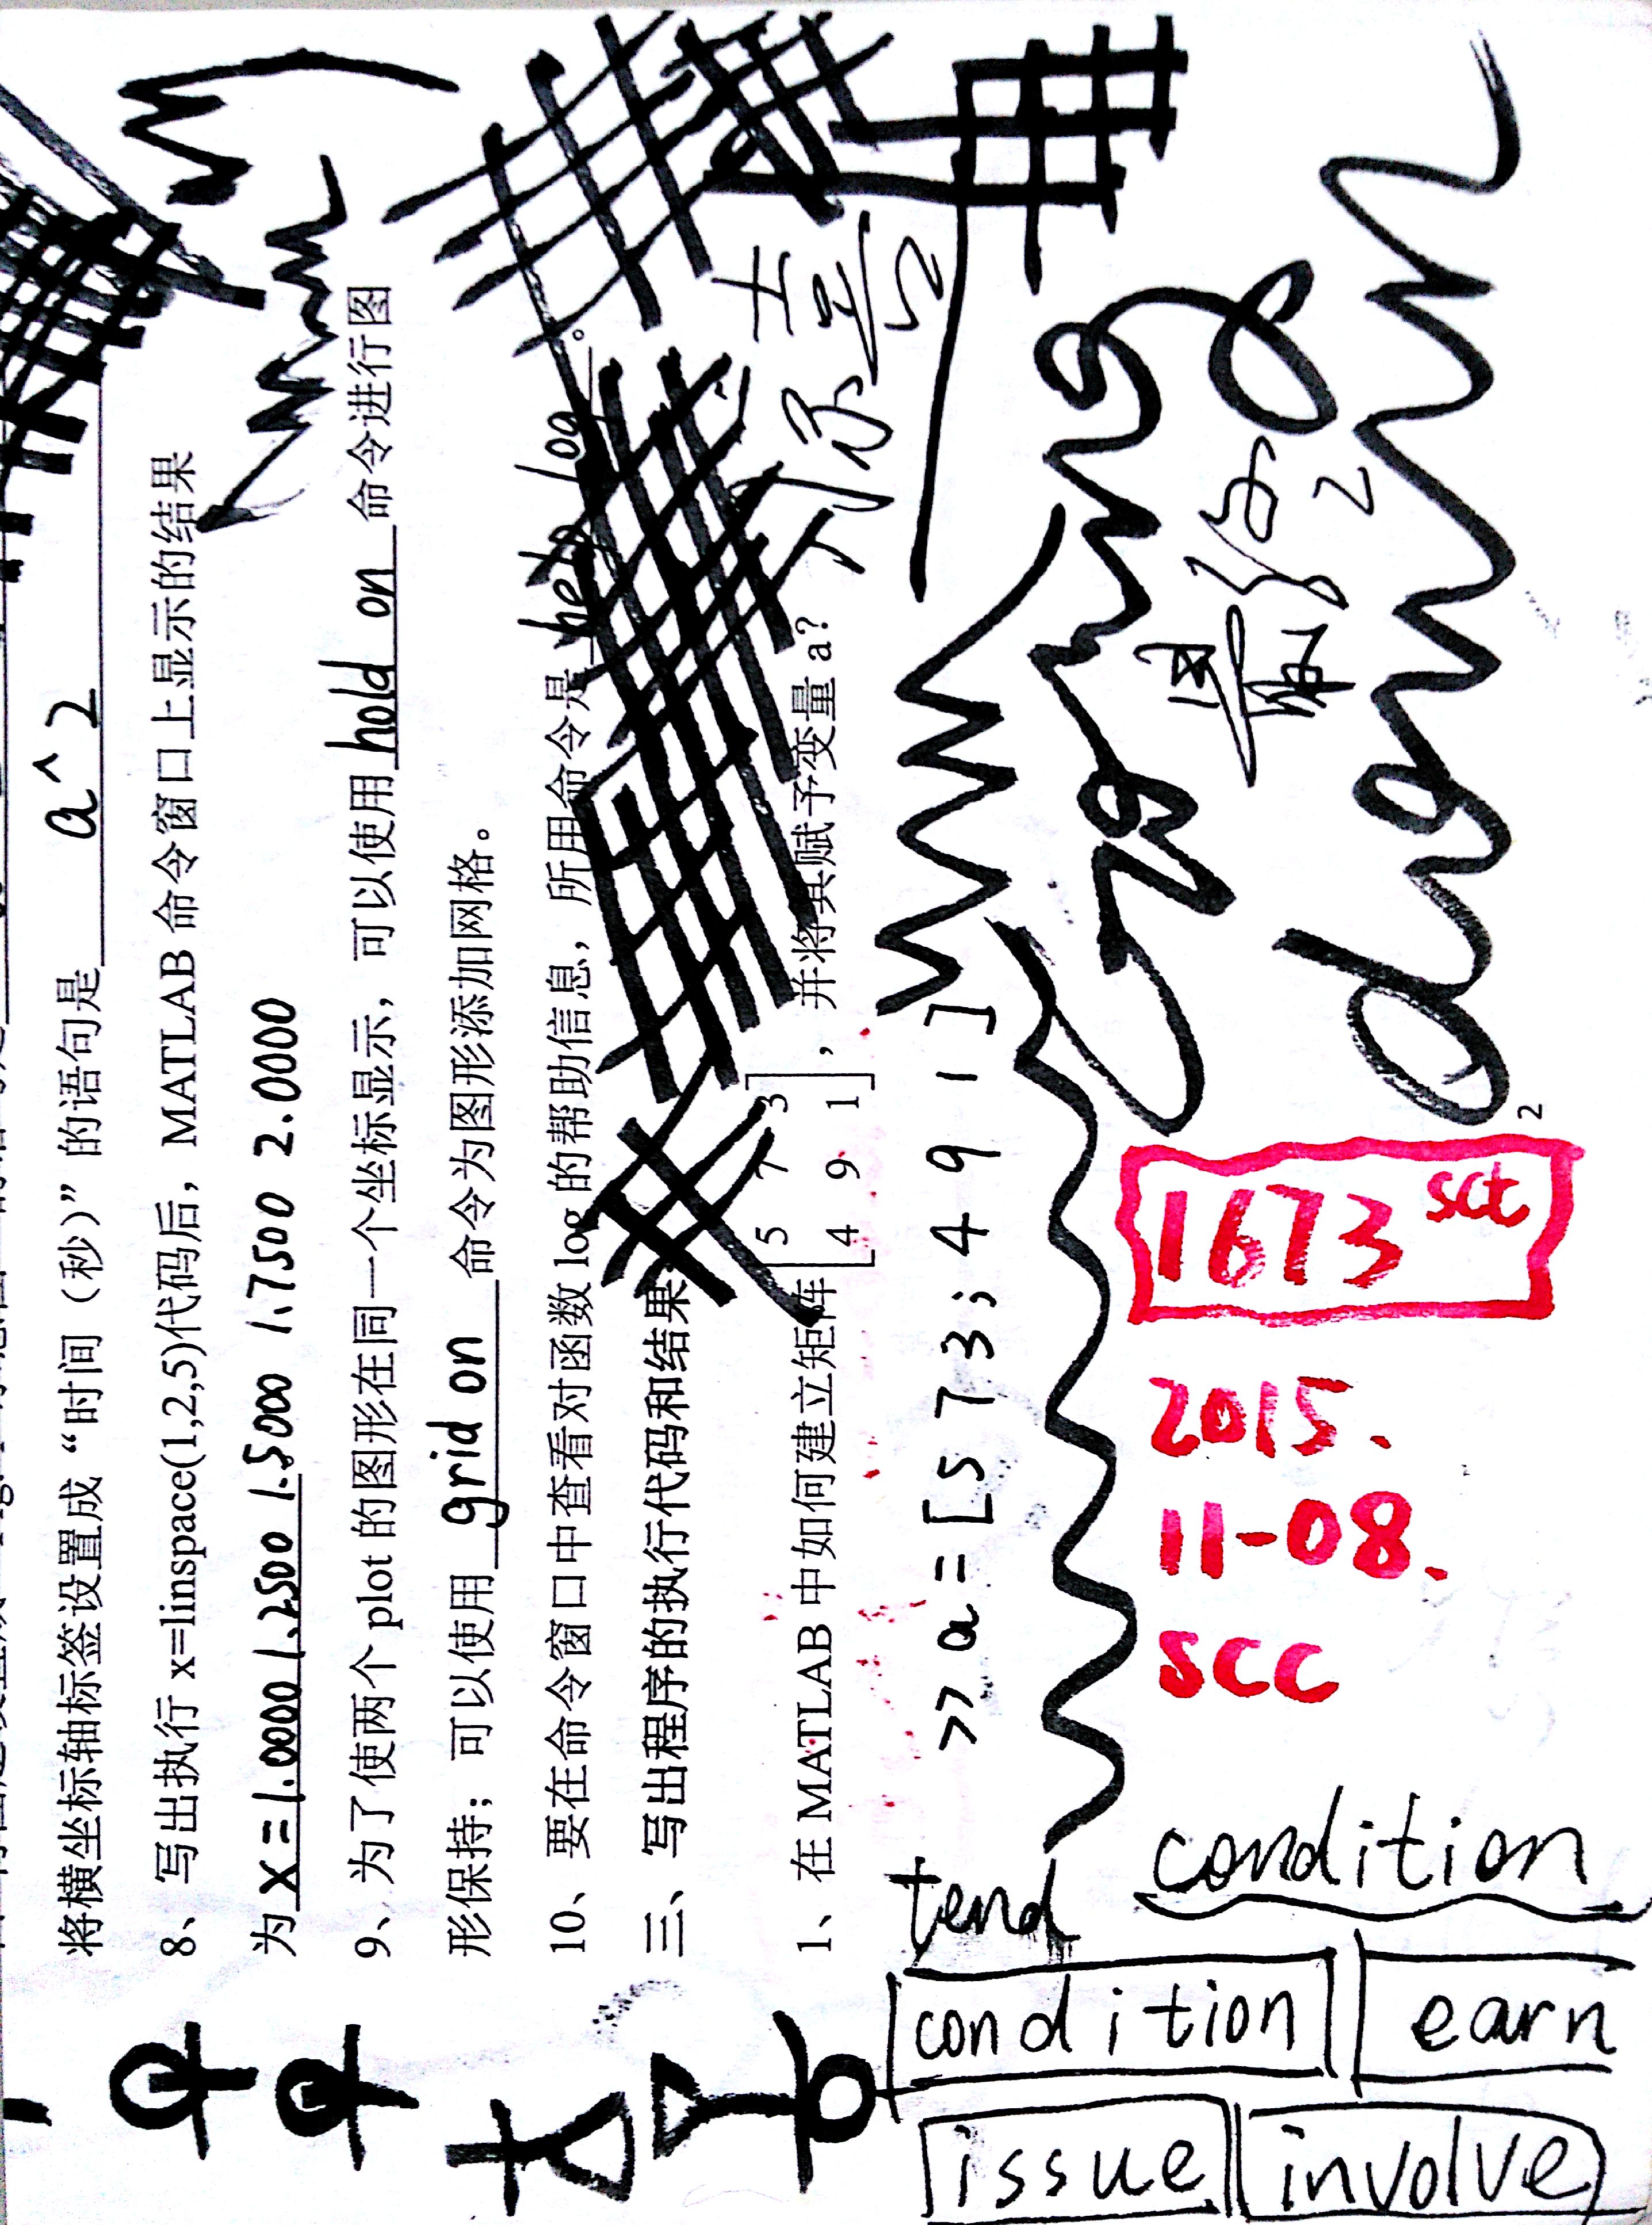 将横坐标轴标签设置成“时间（秒）”的语句是 a^2
8、写出执行 x=linspace(1,2,5)代码后，MATLAB 命令窗口上显示的结果
为 x=1.0000 1.2500 1.5000 1.7500 2.0000
9、为了使两个 plot 的图形在同一个坐标显示，可以使用 hold on 命令进行图
形保持；可以使用 grid on 命令为图形添加网格。
10、要在命令窗口中查看对函数 log 的帮助信息，所用命令是 help log 。
三、写出程序的执行代码和结果
1、在 MATLAB 中如何建立矩阵 [5 7 3
4 9 1]，并将其赋予变量 a?
>> a=[5 7 3; 4 9 1]
tend
condition
condition
earn
issue
involve
1673 sct
2015.
11-08.
scc
2